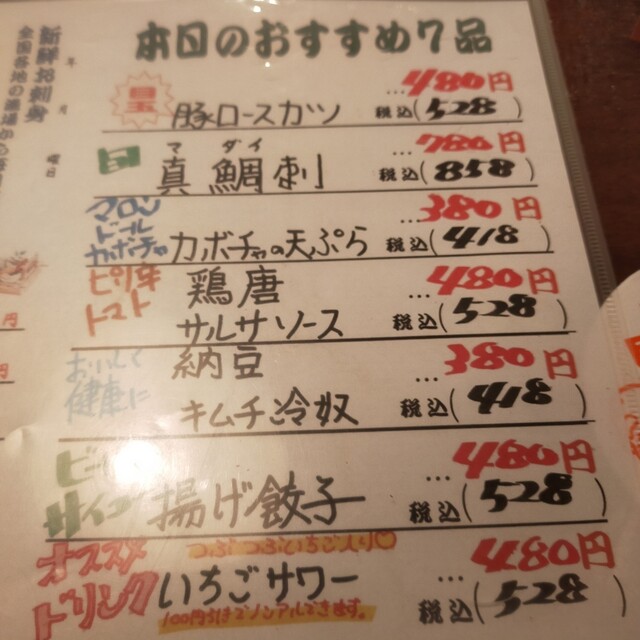 本日のおすすめ7品
目玉
豚ロースカツ
…480円
税込(528)
マダイ
真鯛刺
…780円
税込(858)
マロン
ドール
カボチャ
カボチャの天ぷら
…380円
税込(418)
ピリ辛
トマト
鶏唐
サルサソース
…480円
税込(528)
おいしくて
健康に
納豆
キムチ冷奴
…380円
税込(418)
サイコー
揚げ餃子
…480円
税込(528)
オススメ
ドリンク
つぶつぶいちご入り♡
いちごサワー
100円引きでノンアルできます。
…480円
税込(528)
新鮮お刺身
年 月 曜日
全国各地の漁場から
円
円